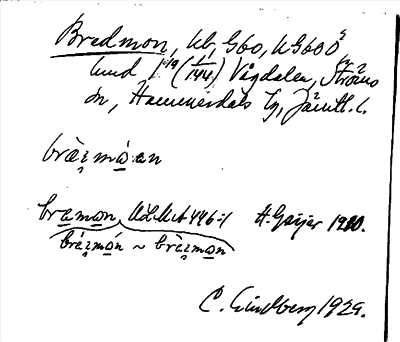 Bredmon, ub, G60, uG600
lund 1/19 (1/144) Vågdalen, Ströms
sn, Hammerdals tg, Jämtl. l.
brèi̯mo̱an
bra̱mo̱n ULMA 446:1 H. Geijer 1920.
bréi̯mo̱n ~ brèi̯mo̱n
C. Lindberg 1929.